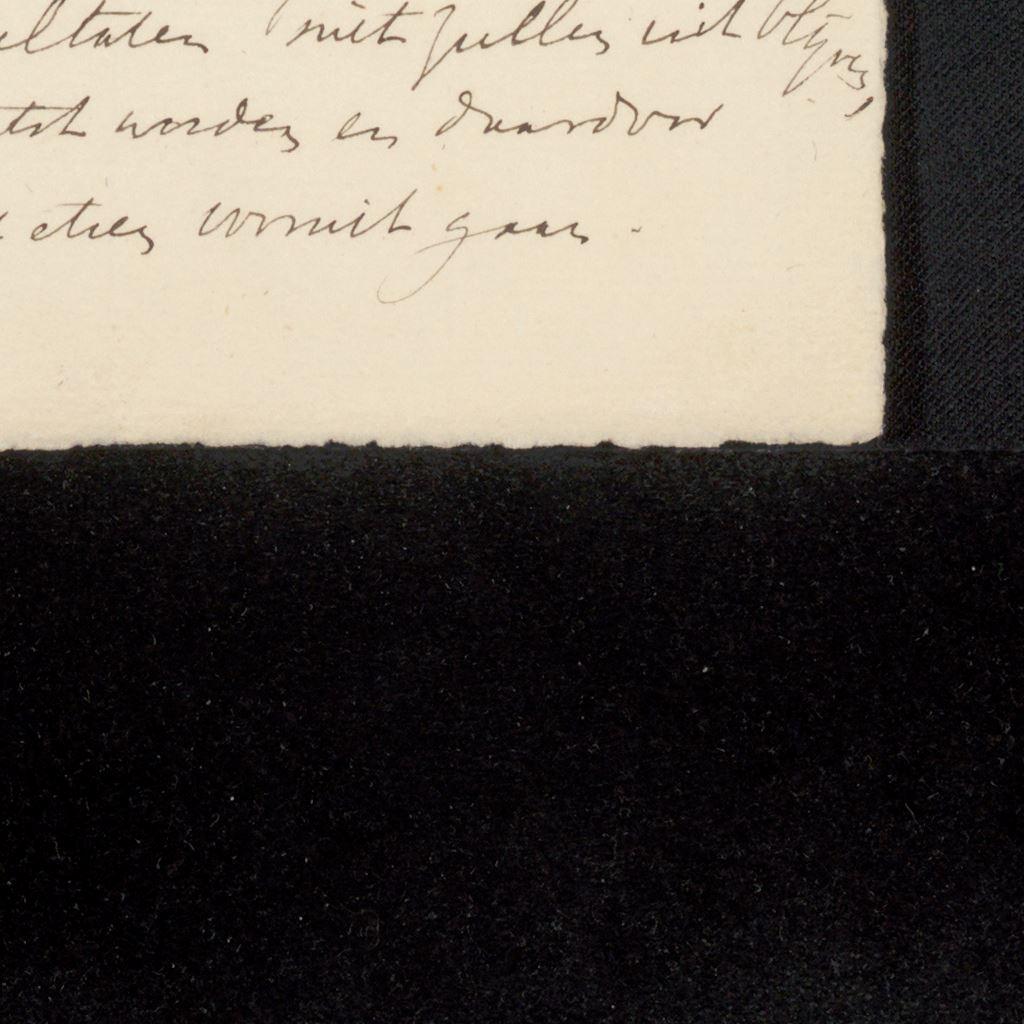 ultaten niet zullen uit blijven,
worden en daardoor
vooruit gaan.